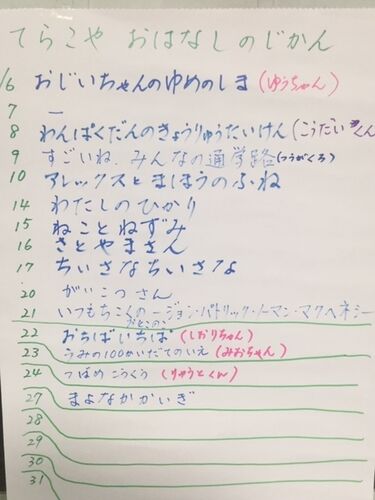 てらこや おはなしのじかん
1/6 おじいちゃんのゆめのしま(ゆうちゃん)
7 ー
8 わんぱくだんのきょうりゅうたいけん(こうだいくん)
9 すごいね、みんなの通学路(つうがくろ)
10 アレックスとまほうのふね
14 わたしのひかり
15 ねことねずみ
16 さとやまさん
17 ちいさなちいさな
20 がいこつさん
21 いつもちこくのおとこのこ―ジョン・パトリック・ノーマン・マクヘネシー
22 おちばいちば(しおりちゃん)
23 うみの100かいだてのいえ(みおちゃん)
24 つばめこうくう(りゅうとくん)
27 まよなかかいぎ
28
29
30
31